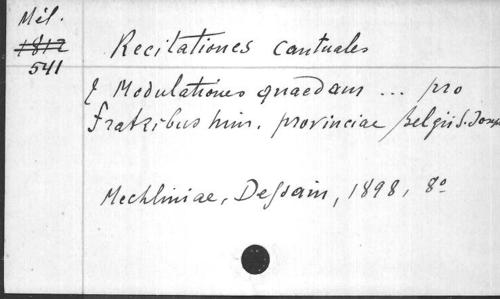 Mél.
1812
541
Recitationes cantuales
& Modulationes quaedam ... pro
Fratribus min. provinciae Belgii S. Joseph
Mechliniae, Dessain, 1898, 8º